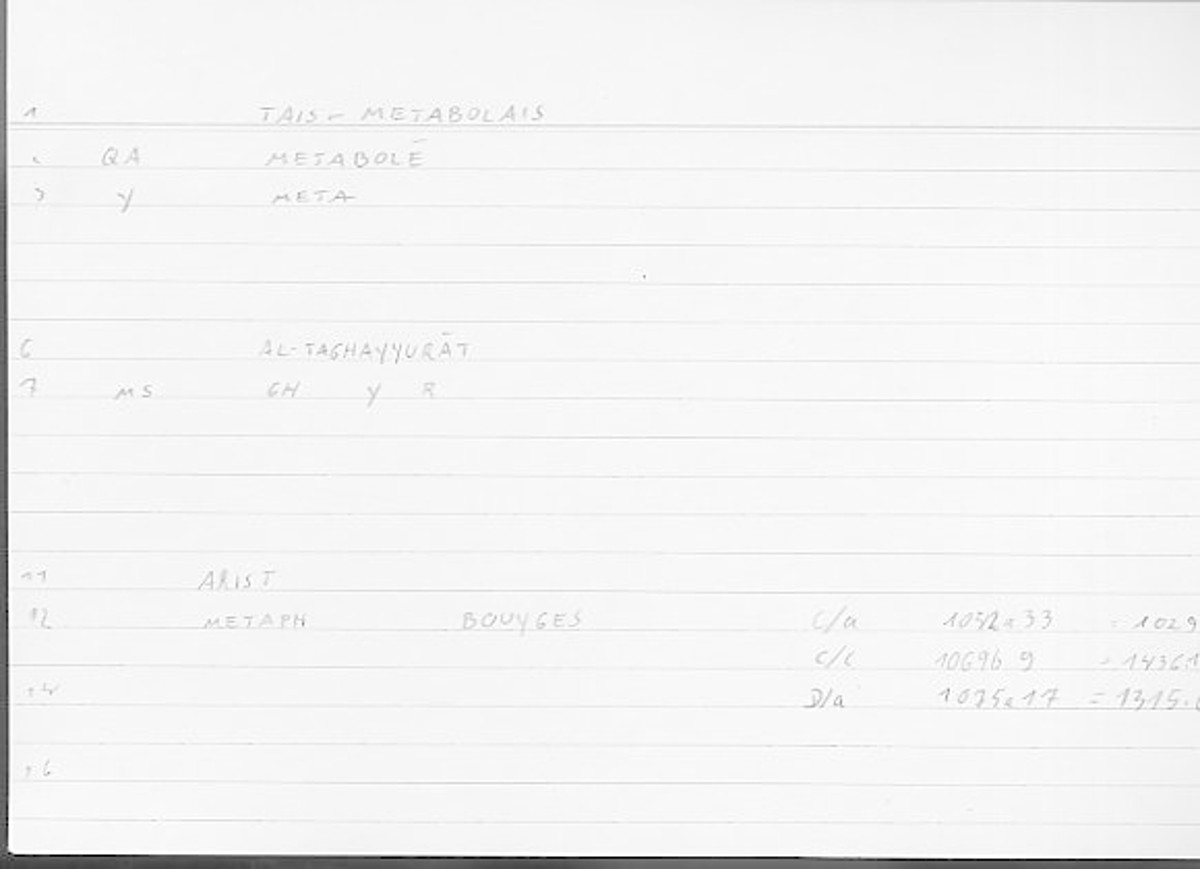 1 TAIS - METABOLAIS
QA METABOLĒ
3 Y META
6 AL-TAGHAYYURĀT
7 MS GH Y R
11 ARIST
12 METAPH BOUYGES C/a 1052a33 = 1029
C/C 1069b9 = 14361
14 D/a 1075a17 = 1315.
16